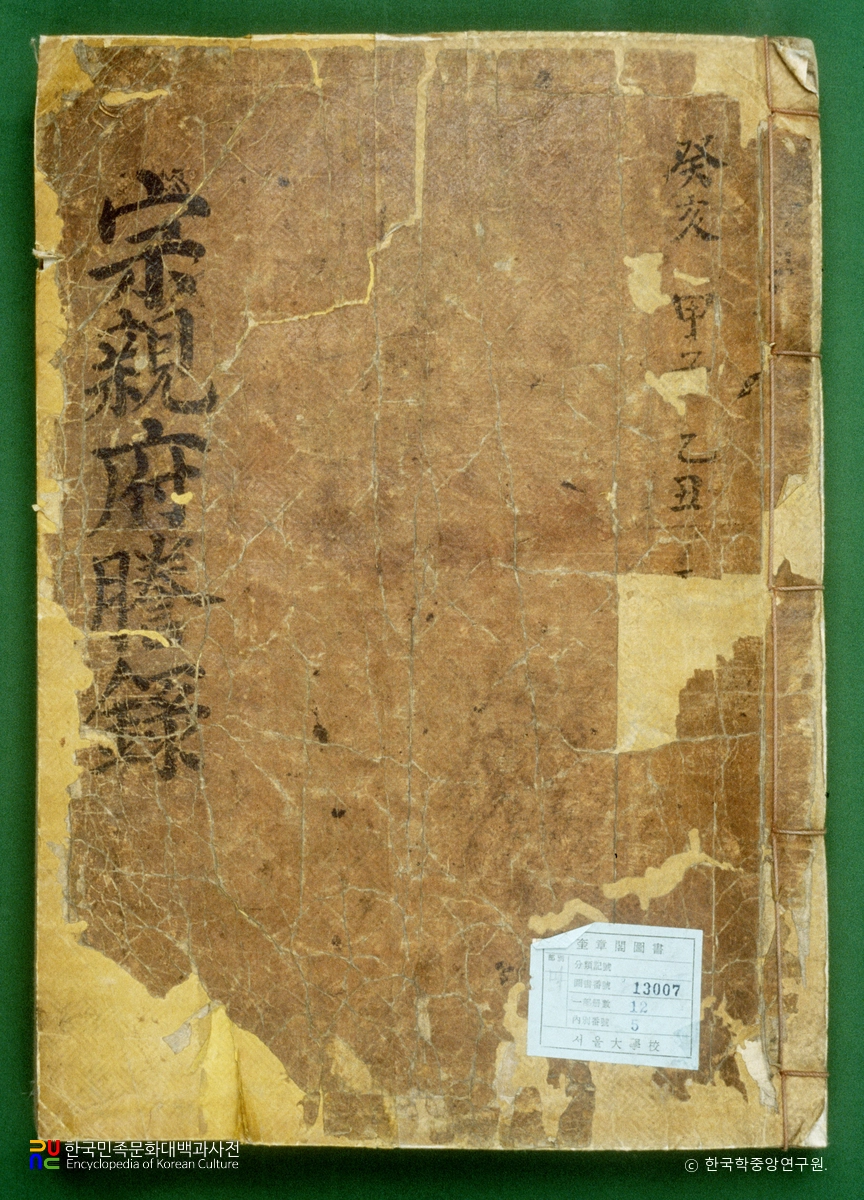 癸亥 甲子 乙丑
宗親府謄錄
奎章閣圖書
分類記號
圖書番號 13007
一部冊數 12
內別番號 5
서울大學校
한국민족문화대백과사전
Encyclopedia of Korean Culture
ⓒ 한국학중앙연구원.